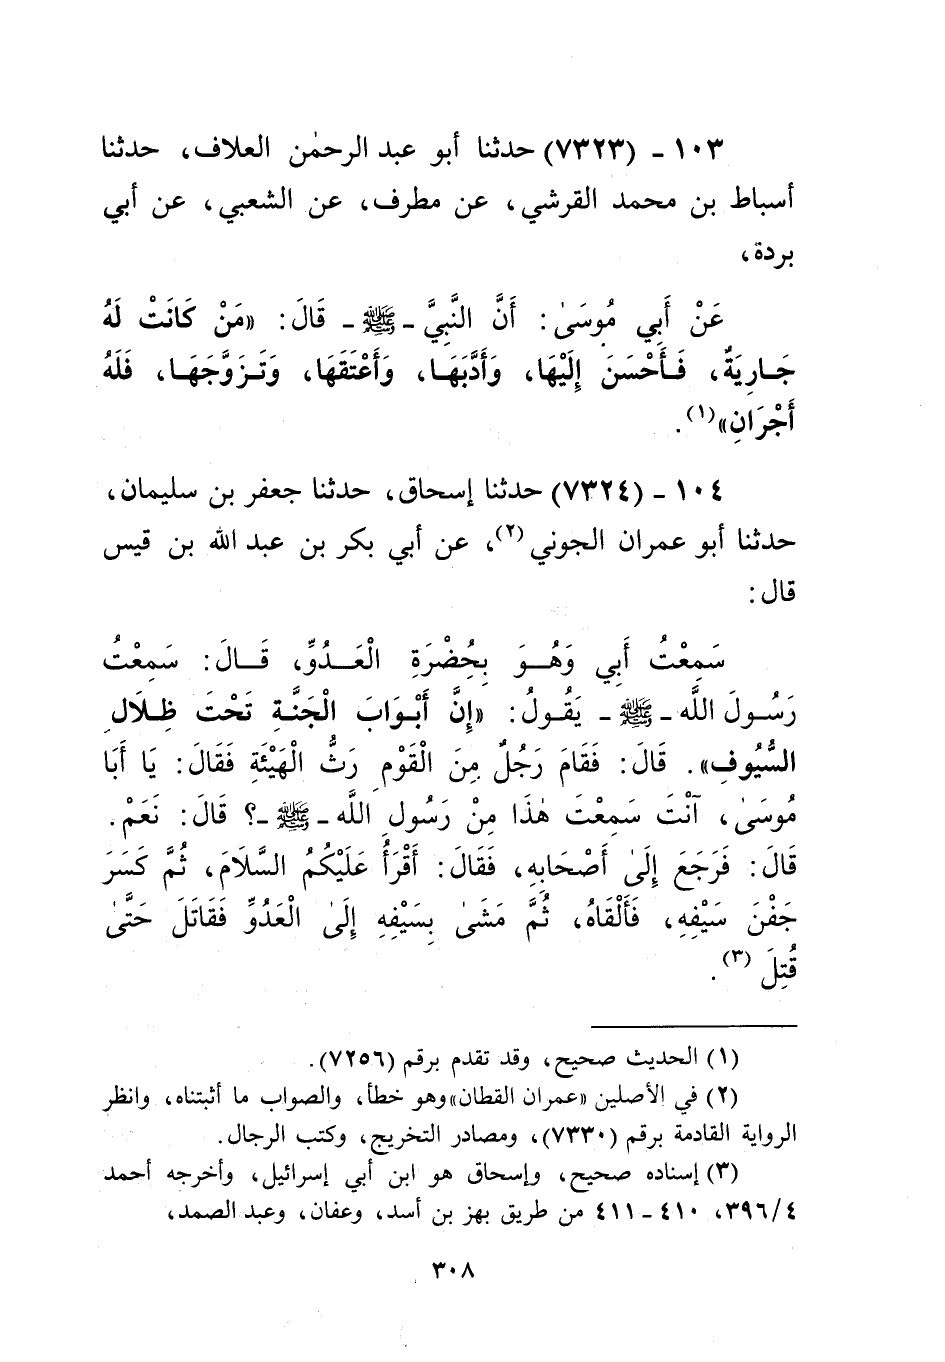 ١٠٣ - (٧٣٢٣) حدثنا أبو عبد الرحمٰن العلاف، حدثنا
أسباط بن محمد القرشي، عن مطرف، عن الشعبي، عن أبي
بردة،
عَنْ أَبِي مُوسَىٰ: أَنَّ النَّبِيَّ - ﷺ - قَالَ: «مَنْ كَانَتْ لَهُ
جَارِيَةٌ، فَأَحْسَنَ إِلَيْهَا، وَأَدَّبَهَا، وَأَعْتَقَهَا، وَتَزَوَّجَهَا، فَلَهُ
أَجْرَانِ»(١).
١٠٤ - (٧٣٢٤) حدثنا إسحاق، حدثنا جعفر بن سليمان،
حدثنا أبو عمران الجوني(٢)، عن أبي بكر بن عبد الله بن قيس
قال:
سَمِعْتُ أَبِي وَهُوَ بِحُضْرَةِ الْعَدُوِّ، قَالَ: سَمِعْتُ
رَسُولَ اللَّه - ﷺ - يَقُولُ: «إِنَّ أَبْوَابَ الْجَنَّةِ تَحْتَ ظِلَالِ
السُّيُوفِ». قَالَ: فَقَامَ رَجُلٌ مِنَ الْقَوْمِ رَثُّ الْهَيْئَةِ فَقَالَ: يَا أَبَا
مُوسَىٰ، آنْتَ سَمِعْتَ هٰذَا مِنْ رَسُولِ اللَّه - ﷺ -؟ قَالَ: نَعَمْ.
قَالَ: فَرَجَعَ إِلَىٰ أَصْحَابِهِ، فَقَالَ: أَقْرَأُ عَلَيْكُمُ السَّلَامَ، ثُمَّ كَسَرَ
جَفْنَ سَيْفِهِ، فَأَلْقَاهُ، ثُمَّ مَشَىٰ بِسَيْفِهِ إِلَىٰ الْعَدُوِّ فَقَاتَلَ حَتَّىٰ
قُتِلَ(٣).
(١) الحديث صحيح، وقد تقدم برقم (٧٢٥٦).
(٢) في الأصلين «عمران القطان»وهو خطأ، والصواب ما أثبتناه، وانظر
الرواية القادمة برقم (٧٣٣٠)، ومصادر التخريج، وكتب الرجال.
(٣) إسناده صحيح، وإسحاق هو ابن أبي إسرائيل، وأخرجه أحمد
٣٩٦/٤، ٤١٠ - ٤١١ من طريق بهز بن أسد، وعفان، وعبد الصمد،
٣٠٨